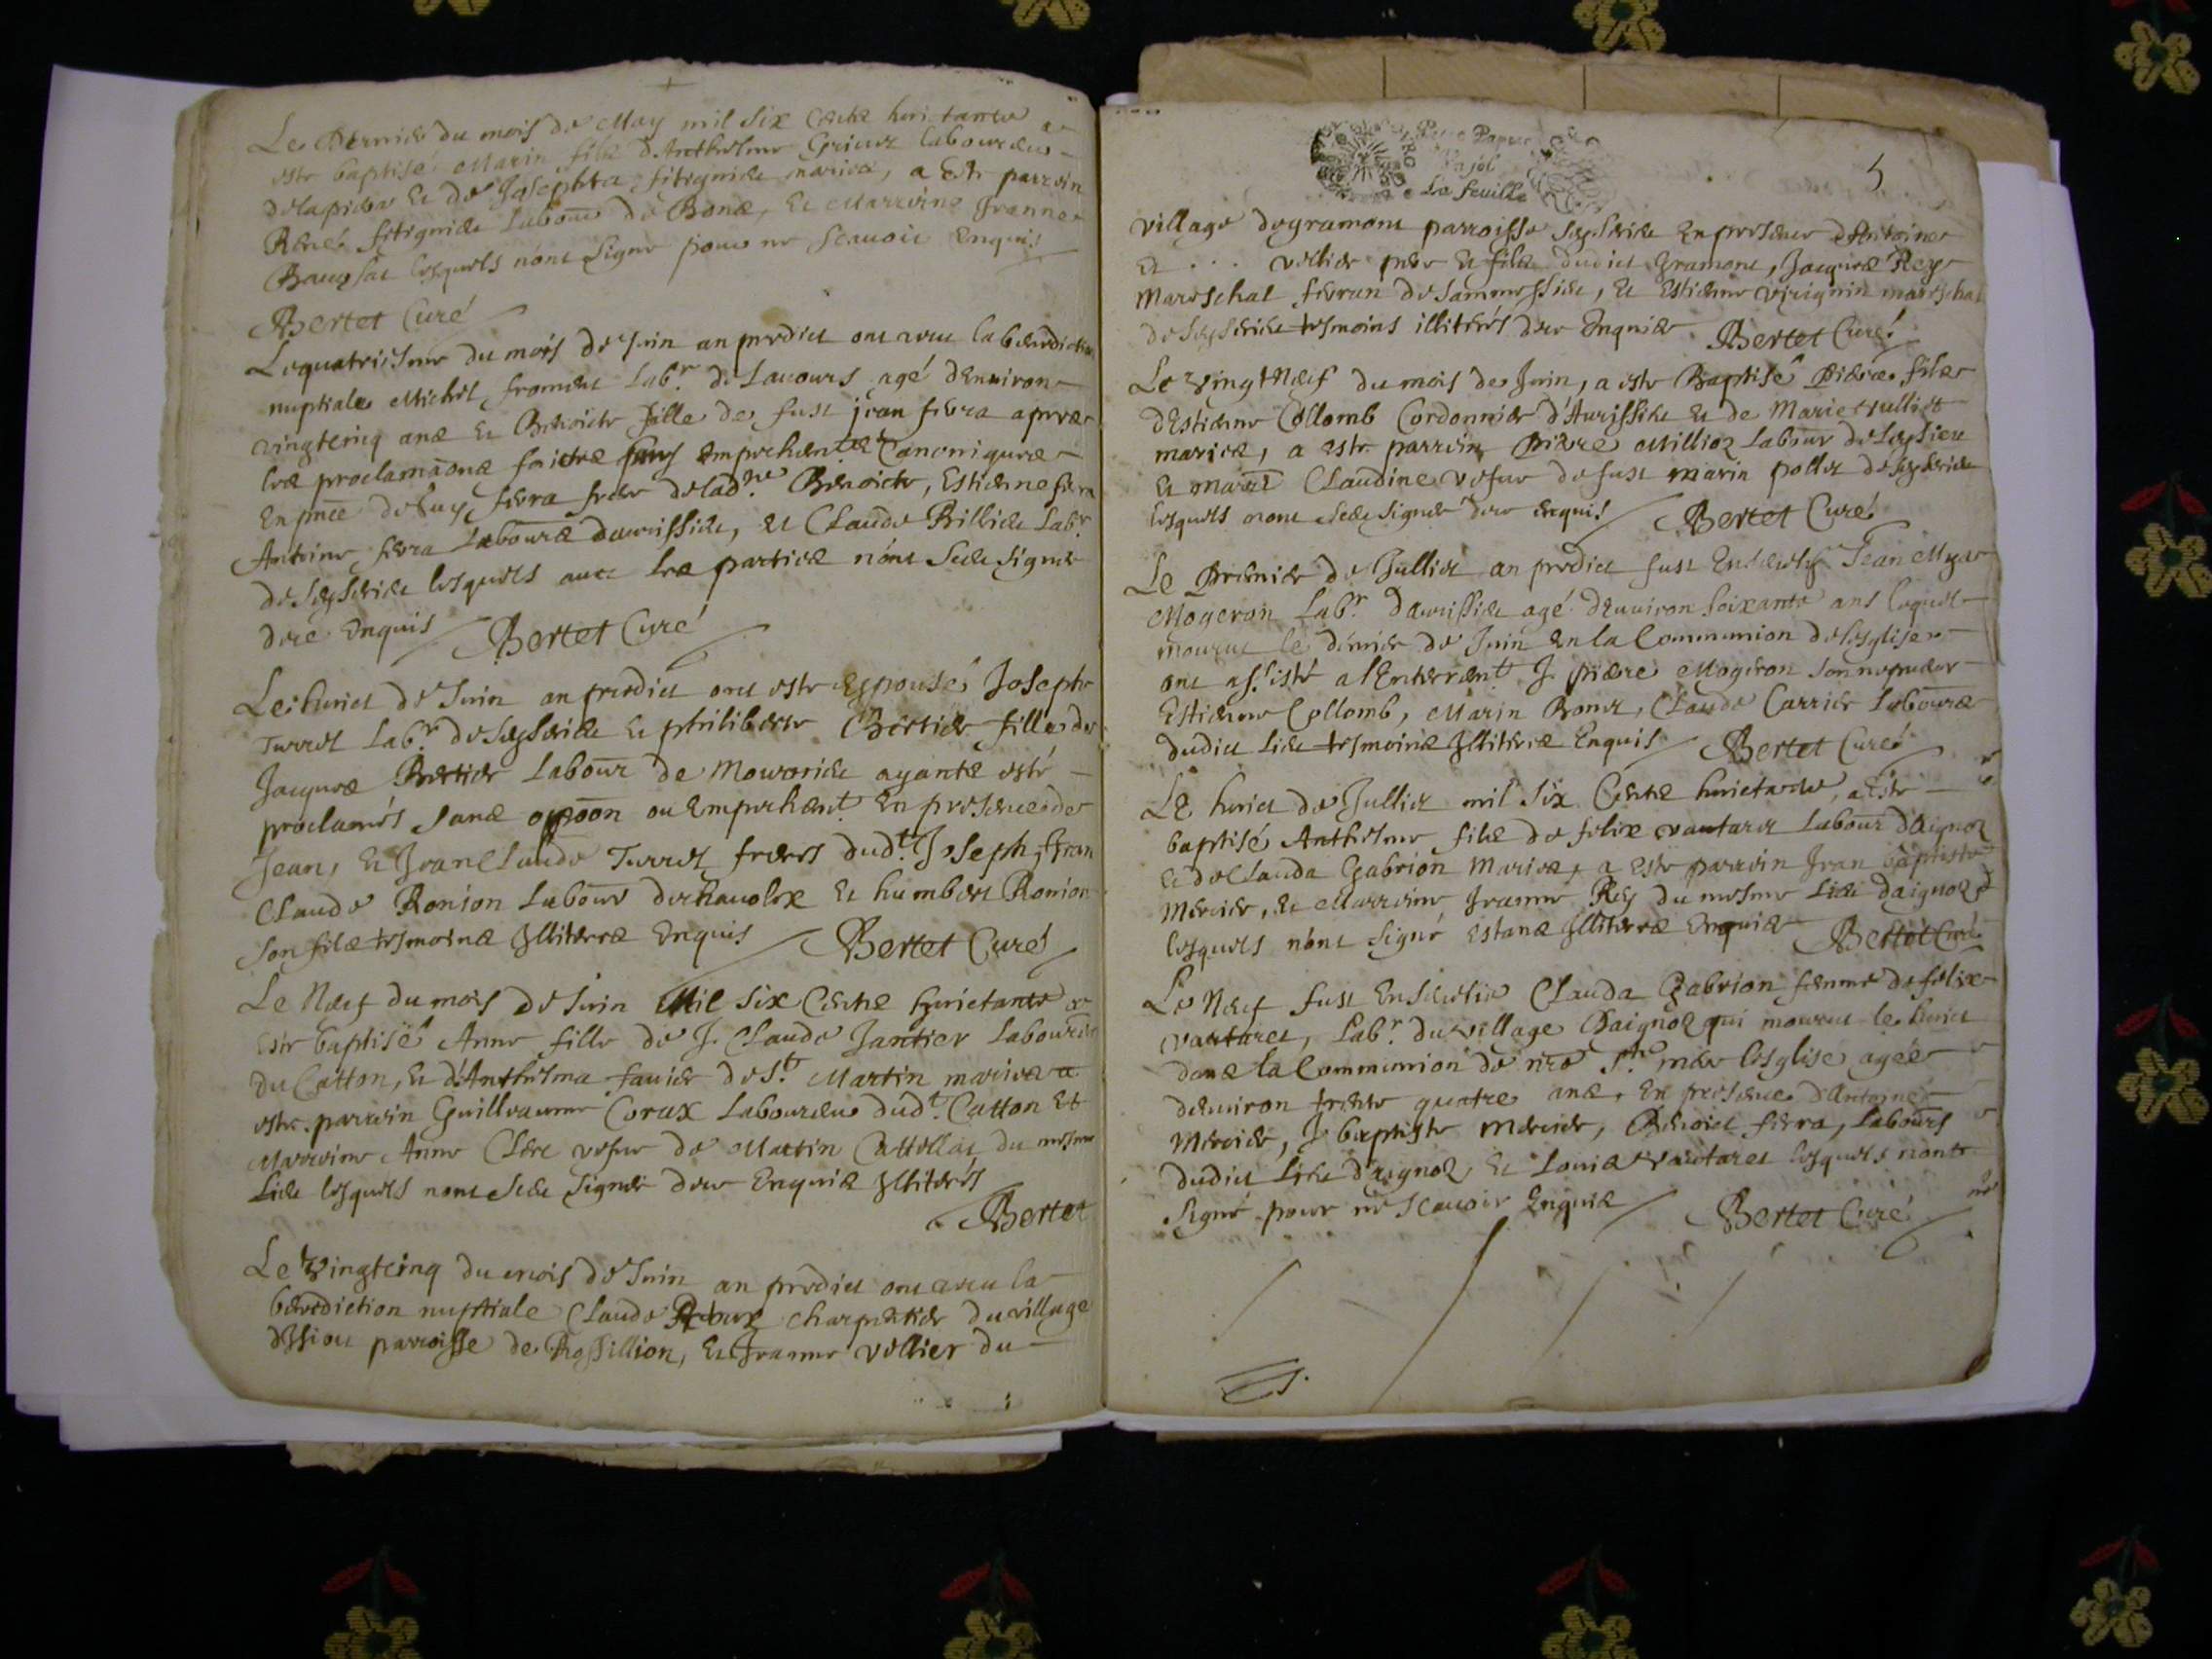 Le Dernier du mois de May mil six Cents huictante a
este baptisé Marin filz d'Anthelme laboureur
et de Josephta mariés, a Este parrein
René labour de et Marreine Jeanne
lesquels nont Signe pour ne scauoir Enquis
Bertet Curé
Le quatriesme du mois de Juin an predict ont receu la benediction
nuptiale Michel froment Lab.r de Lauours agé denuiron
vingtcinq ans et Benoicte fille de fust jean fierra apres
les proclamaons faictes sans Empechent Canoniques
En pnce de Guy fierra frere de lad.te Benoicte, Estienne fierra
Antoine fierra Laboure daurissieu, et Claude Billied Lab.r
de Seyserieu lesquels auec les parties nont Sceu signer
dece Enquis Bertet Curé
Le huict de Juin an predict ont este Espousé Joseph
Turrel Lab.r de Seyserieu et philiberte Bertier fille de
Jacques Bertier Labour de ayants esté
proclamés sans opoon ou Empechent En presence de
Jean, et Jean Claude Turrel freres dud.t Joseph, Jean
Claude Ronion Labour de et humbert Ronion
Son filz tesmoins Illiteres Enquis Bertet Curé
Le Neuf du mois de Juin Mil Six Cents huictante a
este baptisé Anne fille de J. Claude Jantier Laboureur
du Catton, et d'Anthelma fauier de S.t Martin mariés a
este parrein Guilleaume Corux Laboureur dud.t Catton Et
Marreine Anne Clere vefue de Martin du mesme
Lieu lesquels nont Sceu Signer dece Enquis Illiterés
Bertet
Le Vingtcinq du mois de Juin an predict ont receu la
benediction nuptiale Claude charpentier du village
parroisse de Rossillion, et Jeanne vellier du
5
La feuille
village de gramont parroisse Seyserieu En presence d'Antoine
et . . . vellier pere et filz dudict gramont, Jacques Rey
Mareschal et Estienne Virignin mareschal
de Seyserieu tesmoins illiterés dece Enquis Bertet Curé
Le vingt Neuf du mois de Juin, a este Baptisé Pierre filz
d'Estienne Collomb Cordonnier d'Aurissieu et de Marie
mariés, a este parrein Pierre Millioz Labour
et marr Claudine vefue de fust marin pollet de Seyserieu
lesquels nont Sceu Signer dece Enquis Bertet Curé
Le Premier de Jullict an predict fust Enseuely Jean
Mogeron Lab.r daurissieu agé denuiron soixante ans lequel
mourut le dernier de Juin En la Communion de lesglise
ont assisté a l'Enterrent J. pierre Mogeron son nepueu
Estienne Collomb, Marin Bonet, Claude Carrier Laboure
dudict lieu tesmoins Illiteres Enquis Bertet Curé
Le huict de Jullict mil Six Cents huictante, a Este
baptisé Anthelme filz de felix vautaret Labour daignoz
et de Clauda Gabrion Mariés, a este parrein Jean baptiste
Mercier, et Marreine Jeanne Rey du mesme Lieu daignoz
lesquels nont Signé estans Illiteres Enquis Bertet Curé
Le Neuf fust Enseuelie Clauda Gabrion femme de felix
vautaret, Lab.r du village Daignoz qui mourut le huict
dans la Communion de nre S.te mere lesglise agée
denuiron trente quatre ans, En presence d'Antoine
Mercier, J. baptiste mercier, Benoict fierra, Labours
dudict Lieu d'aignoz et Louis vautaret lesquels nont
Signé pour ne Scauoir Enquis Bertet Curé